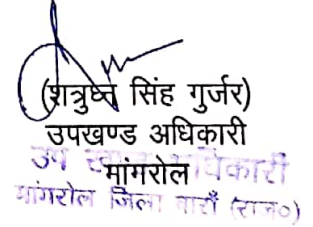 (शत्रुघ्न सिंह गुर्जर)
उपखण्ड अधिकारी
मांगरोल
उप अधिकारी
मांगरोल जिला बाराँ (राज०)